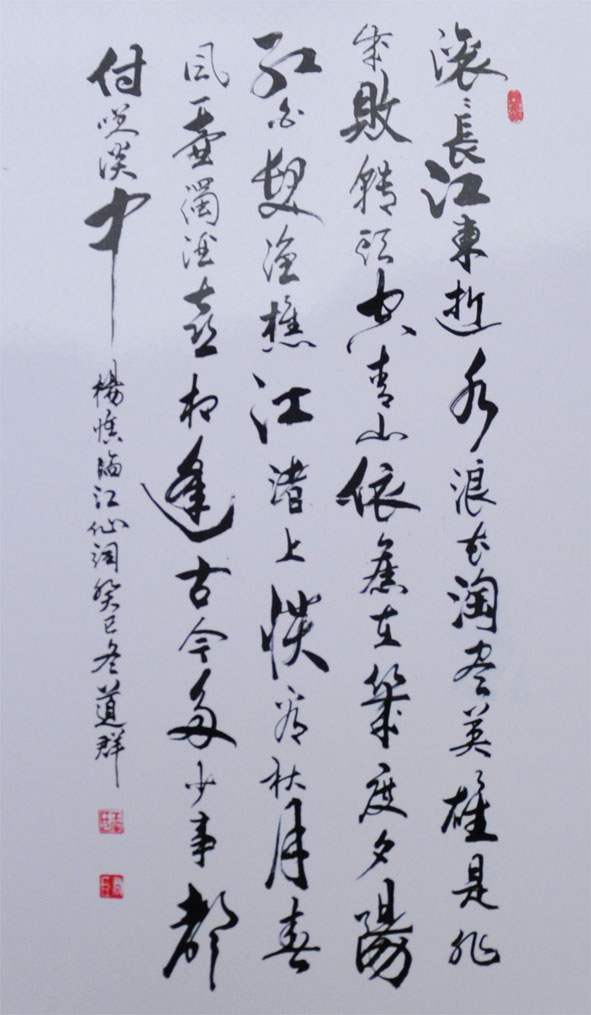 滚〻長江東逝水浪花淘尽英雄是非
成敗轉頭空青山依舊在幾度夕陽
紅白髮渔樵江渚上慣看秋月春
風一壺濁酒喜相逢古今多少事都
付笑谈中
楊慎臨江仙詞癸巳冬道群